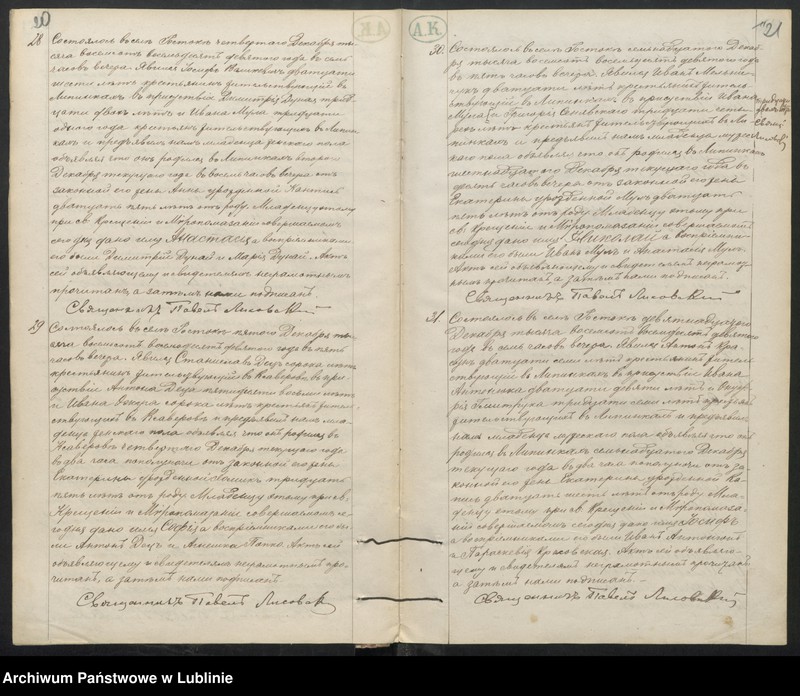 20
28 Состоялось въ селѣ Ростокѣ четвертаго Декабря ты-
сяча восемьсотъ восемьдесятъ девятого года въ семь
часовъ вечера. Явился Іосифъ двадцати
шести лѣтъ крестьянинъ жительствующій въ
Липинкахъ въ присутствіи Димитрія Дуная трид-
цати двухъ лѣтъ и Ивана Мула тридцати
одного года крестьянъ жительствующихъ въ Липин-
кахъ и предъявилъ намъ младенца женскаго пола
объявляя что онъ родился въ Липинкахъ второго
Декабря текущего года въ восемь часовъ вечера отъ
законной его жены Анны урожденной
двадцать пять лѣтъ отъ роду. Младенцу этому
при св. Крещеніи и Мѵропомазаніи совершаемомъ
сегодня дано имя Анастасія а воспріемниками
его были Димитрій Дунай и Марія Дунай. Актъ
сей объявляющему и свидѣтелямъ неграмотнымъ
прочитанъ, а затѣмъ нами подписанъ.
Священникъ Павелъ Лисовскій
29 Состоялось въ селѣ Ростокѣ пятого Декабря ты-
сяча восемьсотъ восемьдесятъ девятого года въ пять
часовъ вечера. Явился Станиславъ Децъ сорока лѣтъ
крестьянинъ жительствующій въ Ксаверовѣ въ при-
сутствіи Антона Деца пятидесяти восьми лѣтъ
и Ивана сорока лѣтъ крестьянъ житель-
ствующихъ въ Ксаверовѣ и предъявилъ намъ мла-
денца женскаго пола объявляя что онъ родился въ
Ксаверовѣ четвертаго Декабря текущего года
въ два часа пополуночи отъ законной его жены
Екатерины урожденной тридцать
пять лѣтъ отъ роду. Младенцу этому при св.
Крещеніи и Мѵропомазаніи совершаемомъ се-
годня дано имя Софія а воспріемниками его бы-
ли Антонъ Децъ и Агнешка Папко. Актъ сей
объявляющему и свидѣтелямъ неграмотнымъ про-
читанъ, а затѣмъ нами подписанъ
Священникъ Павелъ Лисовскій
А.К.
21
30. Состоялось въ селѣ Ростокѣ семнадцатого Декаб-
ря тысяча восемьсотъ восемьдесятъ девятого года
въ пять часовъ вечера. Явился Иванъ
двадцати лѣтъ крестьянинъ житель-
ствующій въ Липинкахъ, въ присутствіи Ивана
Мула и Григорія тридцати
лѣтъ крестьянъ жительствующихъ въ Ли-
пинкахъ и предъявилъ намъ младенца мужес-
каго пола объявляя что онъ родился въ Липинкахъ
шестнадцатого Декабря текущего года въ
десять часовъ вечера отъ законной его жены
Екатерины урожденной Мулъ двадцать
пять лѣтъ отъ роду. Младенцу этому при
св. Крещеніи и Мѵропомазаніи совершаемомъ
сегодня дано имя Николай а воспріемни-
ками его были Иванъ Мулъ и Анастасія Мулъ.
Актъ сей объявляющему и свидѣтелямъ неграмот-
нымъ прочитанъ, а затѣмъ нами подписанъ.
Священникъ Павелъ Лисовскій
31. Состоялось въ селѣ Ростокѣ девятнадцатого
Декабря тысяча восемьсотъ восемьдесятъ девятого
года въ семь часовъ вечера. Явился Антонъ
двадцати семи лѣтъ крестьянинъ житель-
ствующій въ Липинкахъ въ присутствіи Ивана
Антонюка двадцати девяти лѣтъ и
Дмитрука тридцати семи лѣтъ крестьянъ
жительствующихъ въ Липинкахъ и предъявилъ
намъ младенца мужескаго пола объявляя что онъ
родился въ Липинкахъ семнадцатого Декабря
текущего года въ два часа пополуночи отъ за-
конной его жены Екатерины урожденной
двадцать шесть лѣтъ отъ роду. Мла-
денцу этому при св. Крещеніи и Мѵропомаза-
ніи совершаемомъ сегодня дано имя Іосифъ
а воспріемниками его были Иванъ Антонюкъ
и Параскевія Актъ сей объявляю-
щему и свидѣтелямъ неграмотнымъ прочитанъ
а затѣмъ нами подписанъ. —
Священникъ Павелъ Лисовскій
Archiwum Państwowe w Lublinie